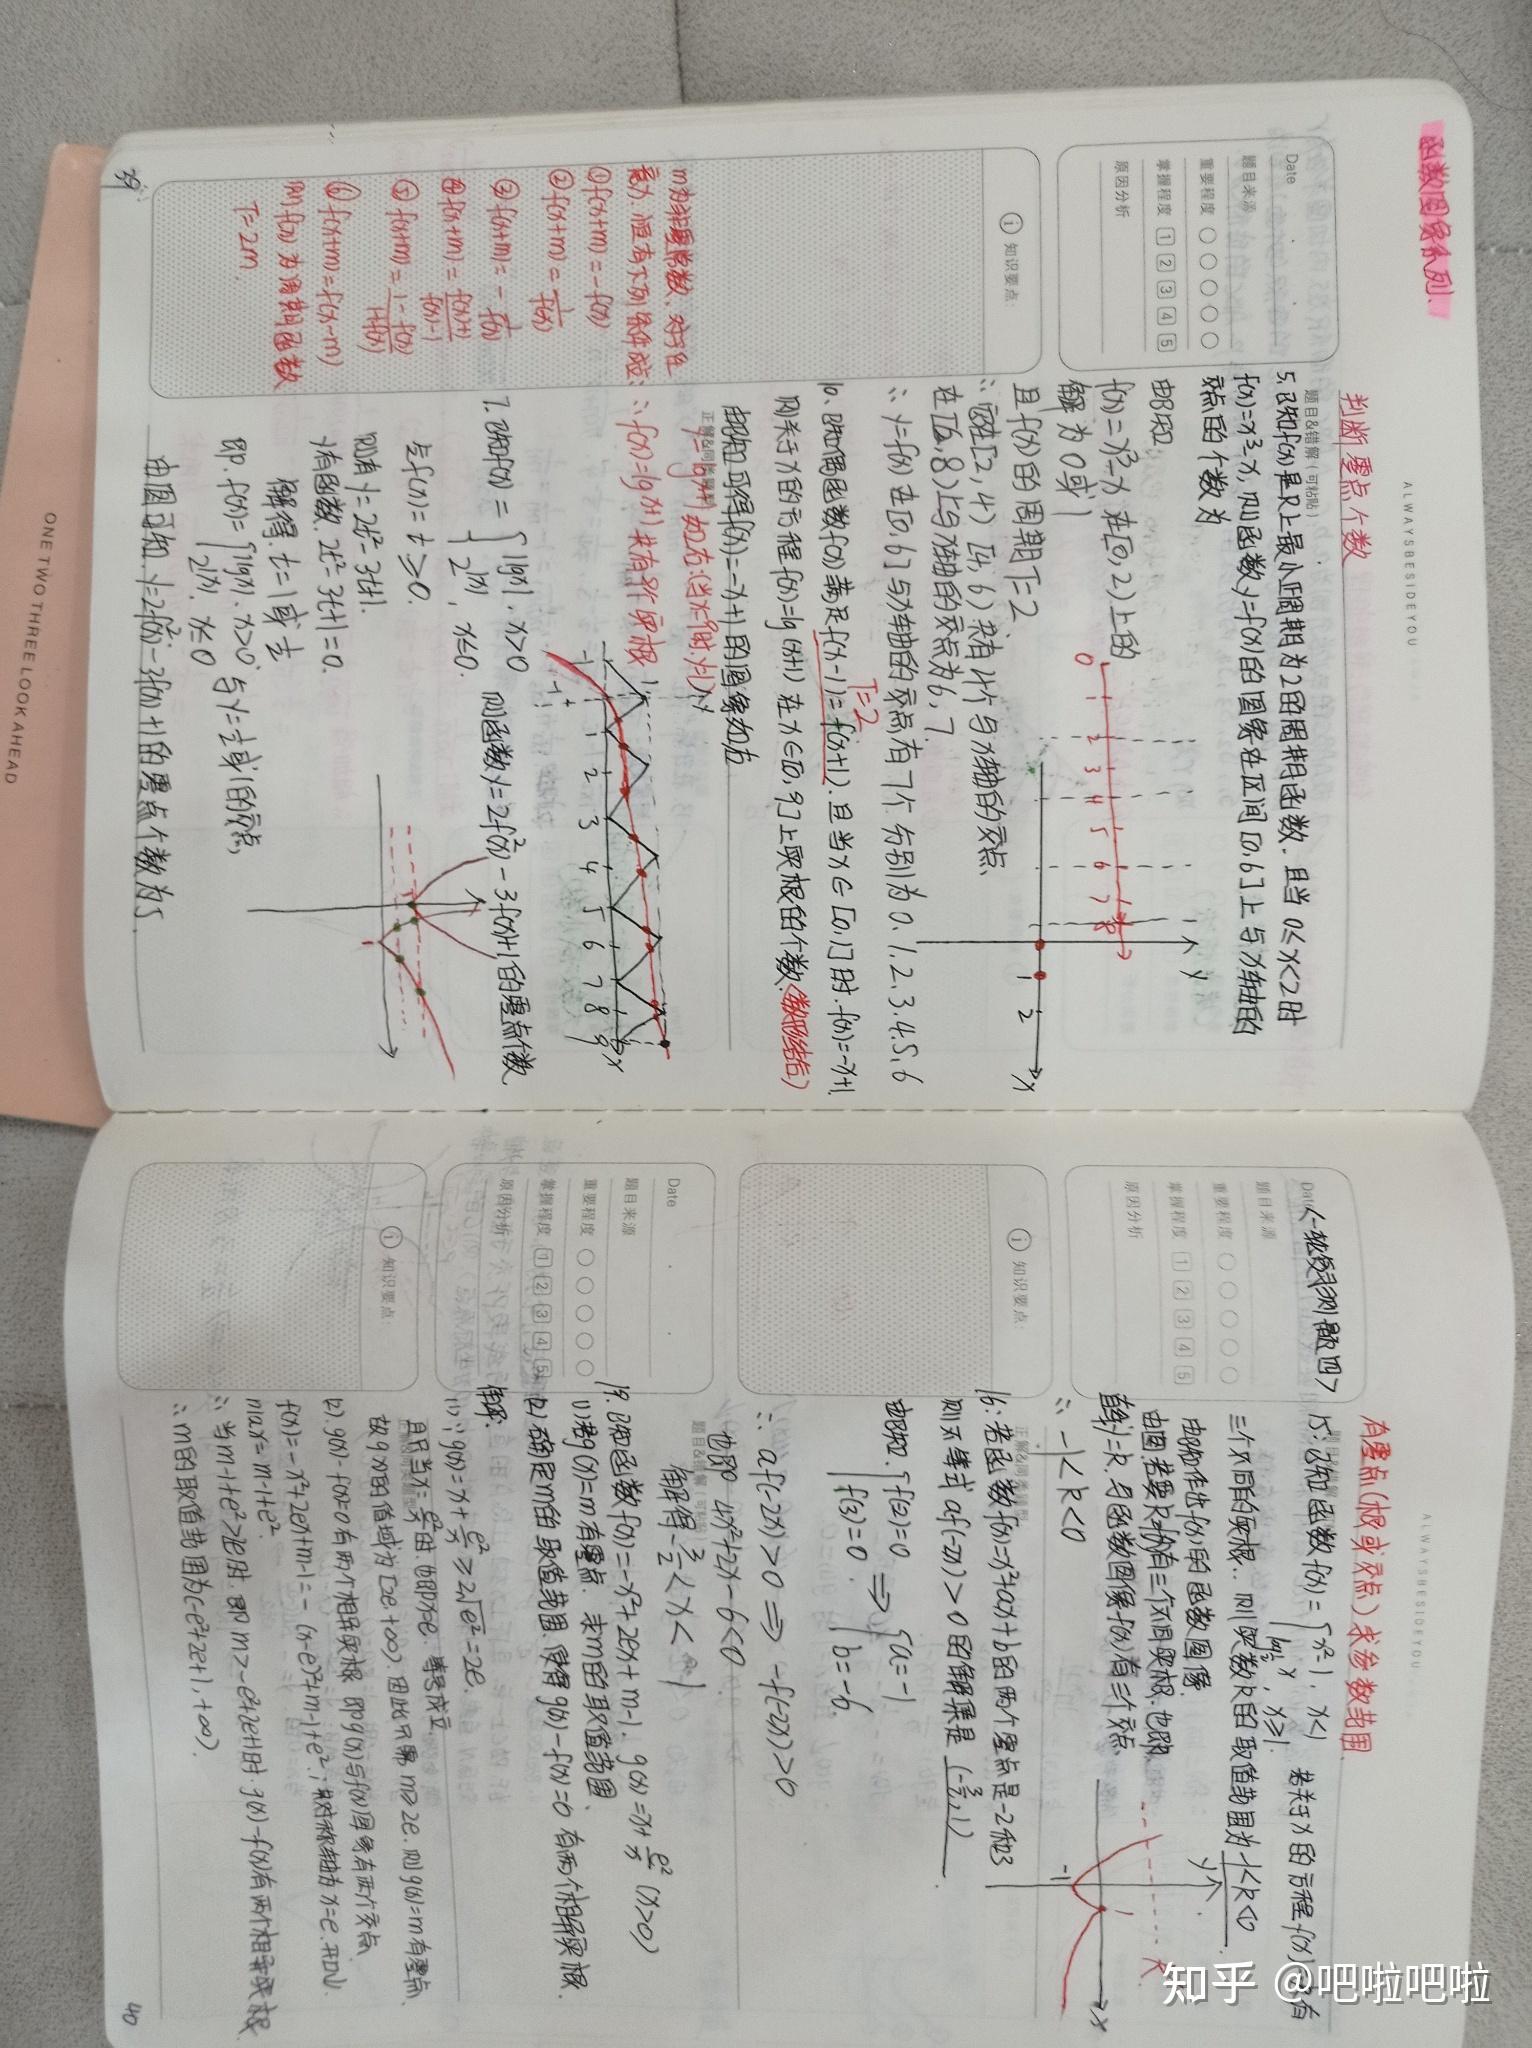 函数图象系列.
ALWAYSBESIDEYOU
判断零点个数
Date
题目来源
重要程度
掌握程度 1 2 3 4 5
原因分析
题目&错解(可粘贴)
5.已知f(x)是R上最小正周期为2的周期函数.且当0≤x<2时
f(x)=x³-x,则函数y=f(x)的图象在区间[0,6]上与x轴的
交点的个数为
由题知
f(x)=x³-x在[0,2)上的
解为0或1
且f(x)的周期T=2
∴应在[2,4) [4,6)共有4个与x轴的交点
在[6,8)上与x轴的交点为6,7.
∴y=f(x)在[0,6]与x轴的交点有7个 分别为0.1.2.3.4.5.6
0 1 2 3 4 5 6 7 8
y
1 2 x
知识要点:
m为非零常数,对于任
意x,恒有下列条件成立:
①f(x+m)=-f(x)
②f(x+m)=1/f(x)
③f(x+m)=-1/f(x)
④f(x+m)=f(x)+1/f(x)-1
⑤f(x+m)=1-f(x)/1+f(x)
⑥f(x+m)=f(x-m)
则f(x)为周期函数
T=2m
10.已知偶函数f(x)满足f(x-1)=f(x+1).且当x∈[0,1]时.f(x)=-x+1,
T=2
则关于x的方程f(x)=lg(x+1)在x∈[0,9]上实根的个数(数形结合)
由题知可得f(x)=-x+1的图象如右
正解&同类题型
y=lg(x+1)如右(当x=9时.y=1)
∴f(x)=lg(x+1)共有9个实根
-1 1 2 3 4 5 6 7 8 9 x
7.已知f(x)={|lgx|,x>0
2^|x|,x≤0.
则函数y=2f²(x)-3f(x)+1的零点个数
令f(x)=t≥0.
则有y=2t²-3t+1.
若有函数.2t²-3t+1=0.
解得.t=1或1/2
即.f(x)={|lgx|.x>0.
2^|x|.x≤0
与y=1/2或1的交点,
由图可知.y=2f²(x)-3f(x)+1的零点个数为5.
39
ONE TWO THREE LOOK AHEAD
ALWAYSBESIDEYOU
<一轮复习测 题四>
有零点(根或交点)求参数范围
Date
题目来源
重要程度
掌握程度 1 2 3 4 5
原因分析
15:已知函数f(x)={x²-1,x<1
log_{1/2}x,x≥1.
若关于x的方程f(x)=k有
三个不同的实根..则实数k的取值范围为-1<k<0
由题知作出f(x)的函数图像.
由图.若要k有三个不同实根,也即
直线y=k.与函数图像f(x)有三个交点.
∴-1<k<0
y
-1 1 x
k
知识要点:
正解&同类题型
16:若函数f(x)=x²+ax+b的两个零点是-2和3
则不等式af(-2x)>0的解集是(-3/2,1).
由题知.{f(-2)=0
f(3)=0.
⇒{a=-1
b=-6.
∴af(-2x)>0⇒-f(-2x)>0
也即4x²+2x-6<0
解得-3/2<x<1
Date
题目来源
重要程度
掌握程度 1 2 3 4 5
原因分析
题目&错解(可粘贴)
19.已知函数f(x)=-x²+2ex+m-1. g(x)=x+e²/x(x>0)
(1)若g(x)=m有零点.求m的取值范围.
(2)确定m的取值范围.使得g(x)-f(x)=0有两个相异实根.
解:
(1)∵g(x)=x+e²/x≥2√e²=2e.
且只当x=e²/x时.也即x=e 等号成立
故g(x)的值域为[2e,+∞).因此只需m≥2e.则g(x)=m有零点.
(2).g(x)-f(x)=0有两个相异实根 即g(x)与f(x)图象有两个交点
f(x)=-x²+2ex+m-1=-(x-e)²+m-1+e².其对称轴为x=e.开口↓
max=m-1+e².
∴当m-1+e²>2e时.即m>-e²+2e+1时.g(x)-f(x)有两个相异实根
∴m的取值范围为(-e²+2e+1,+∞).
知识要点:
40
知乎 @吧啦吧啦